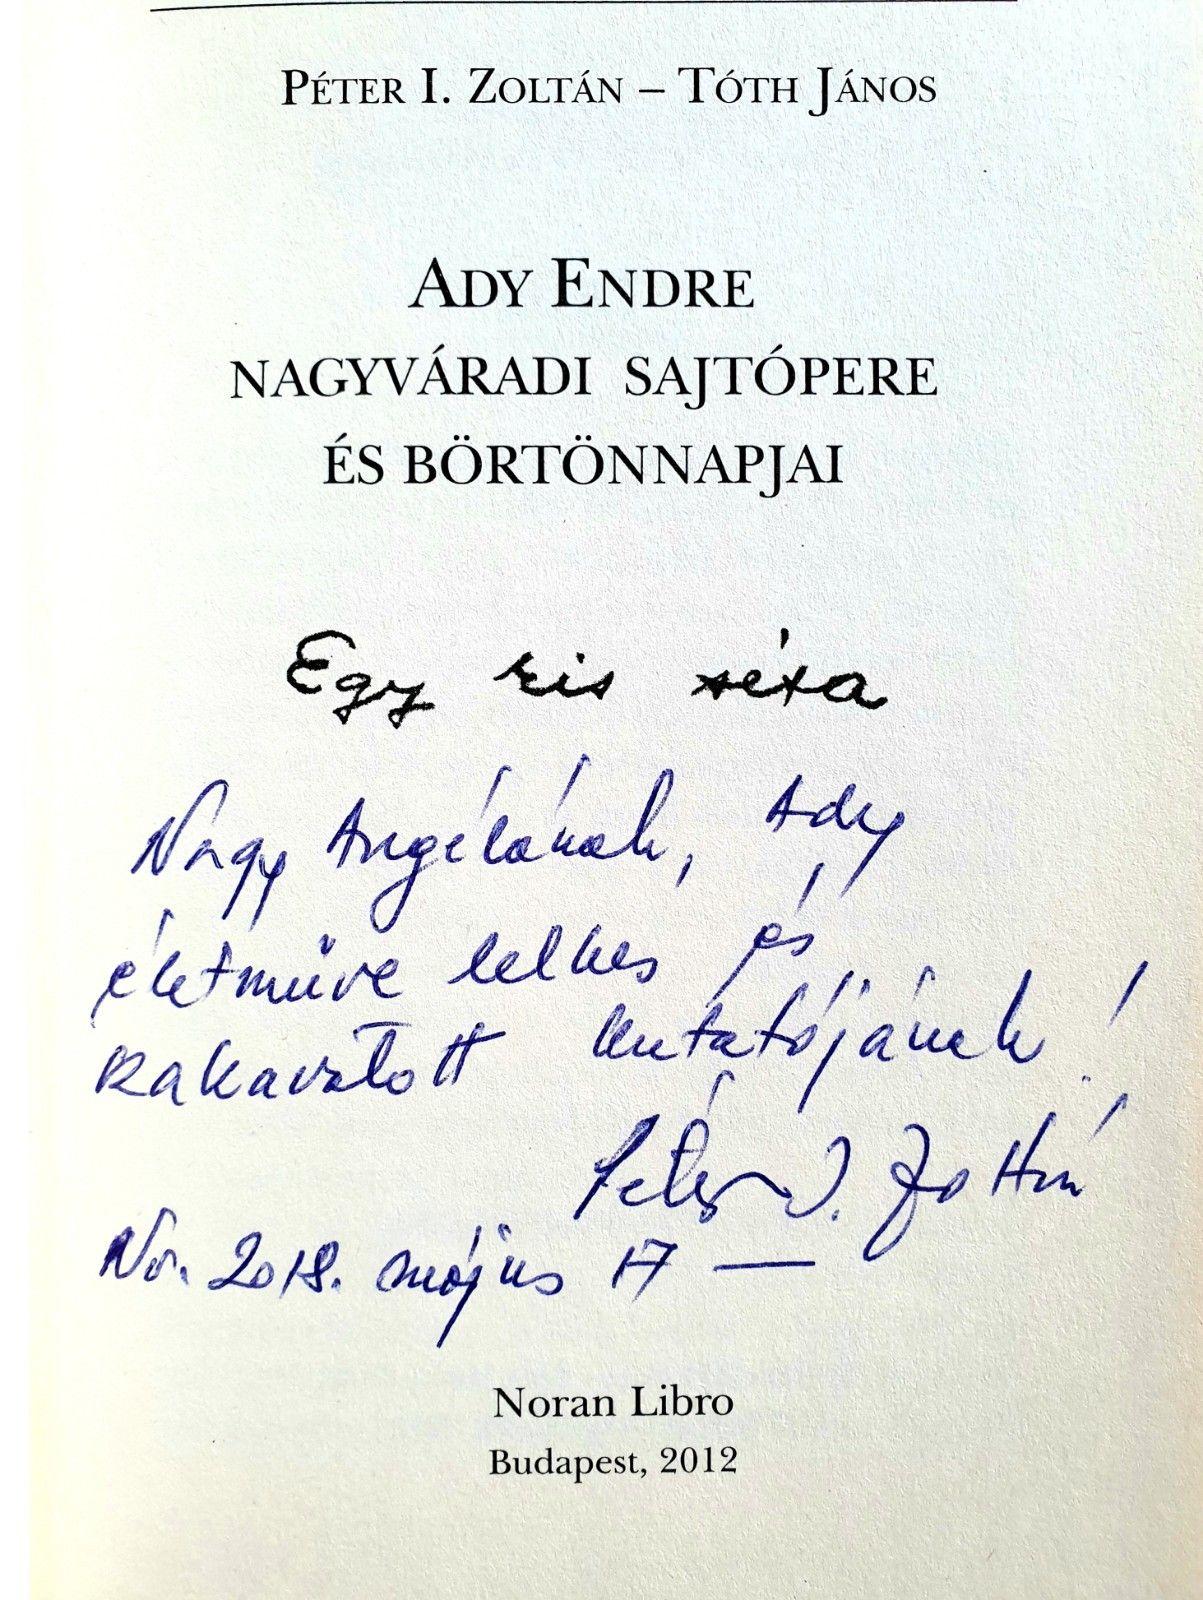 PÉTER I. ZOLTÁN – TÓTH JÁNOS
ADY ENDRE
NAGYVÁRADI SAJTÓPERE
ÉS BÖRTÖNNAPJAI
Egy kis séta
Nagy Angélának, Ady
életműve lelkes és
szakavatott kutatójának!
Péter I. Zoltán
Nv. 2018. május 17 —
Noran Libro
Budapest, 2012